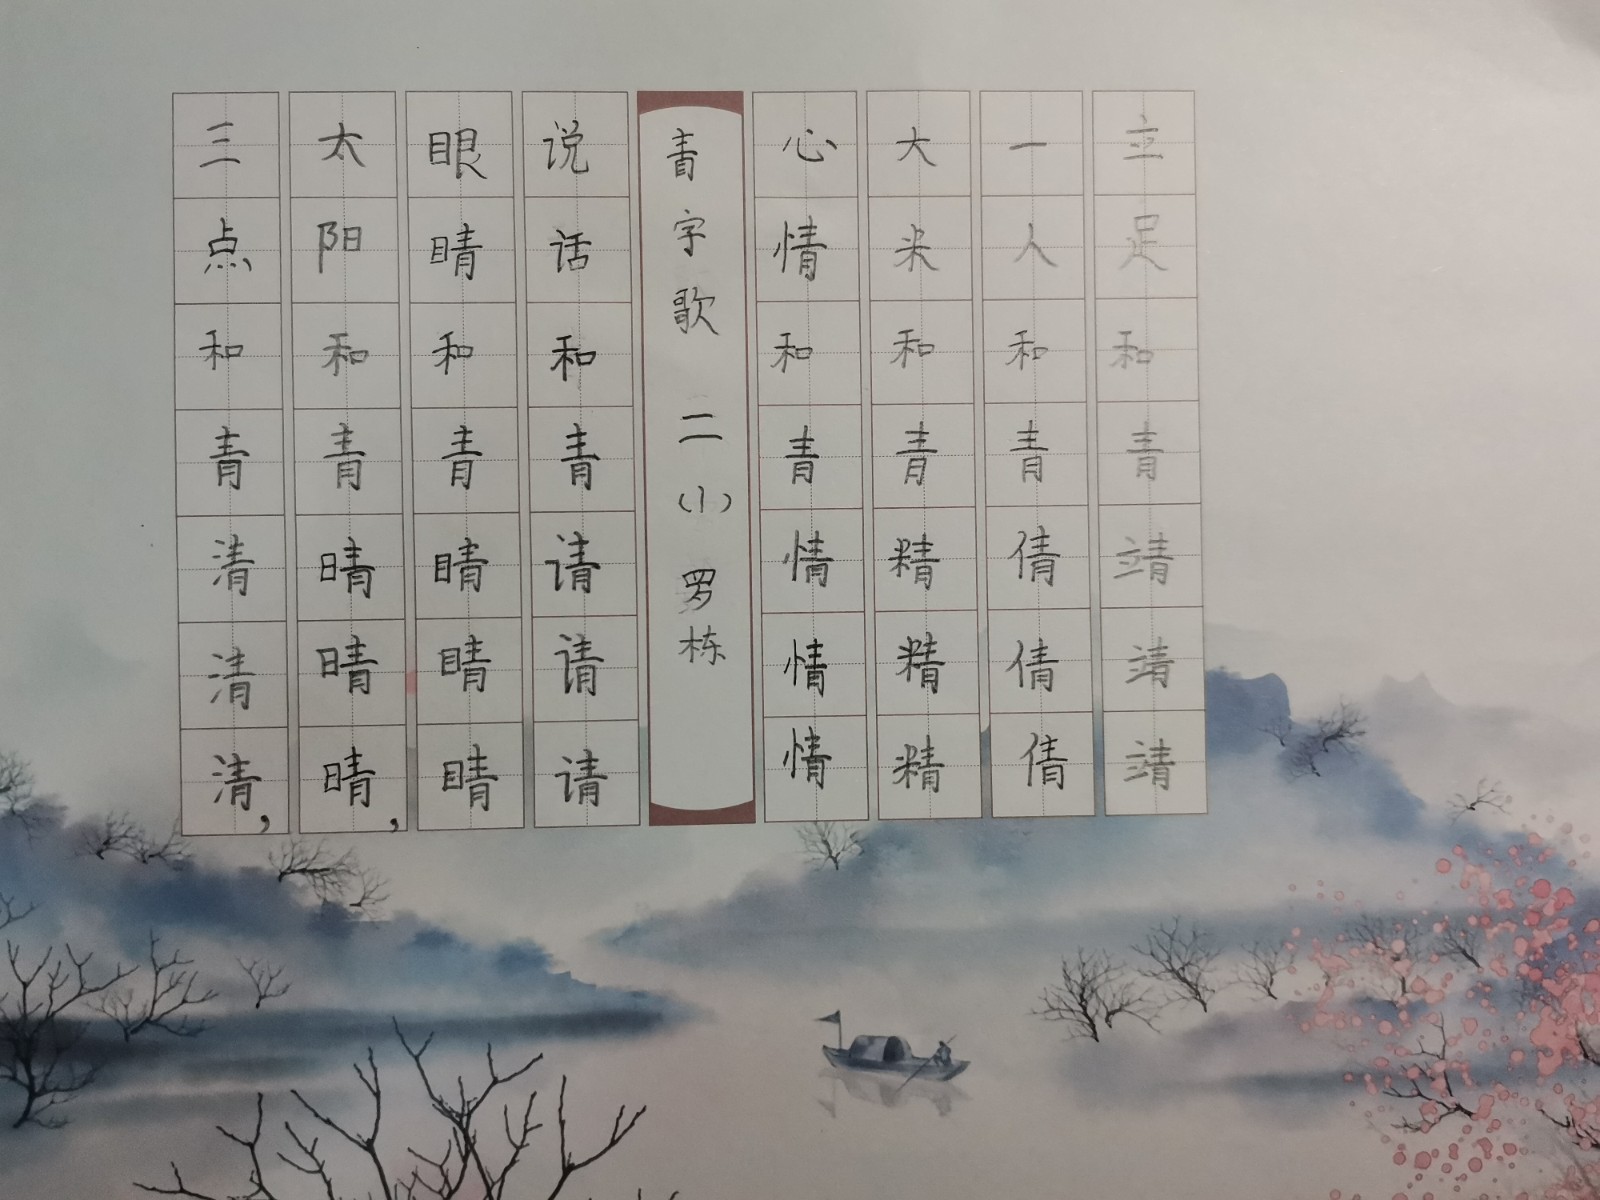 三点和青清清清，
太阳和青晴晴晴，
眼睛和青睛睛睛
说话和青请请请
青字歌 二（1）罗栋
心情和青情情情
大米和青精精精
一人和青倩倩倩
立足和青靖靖靖